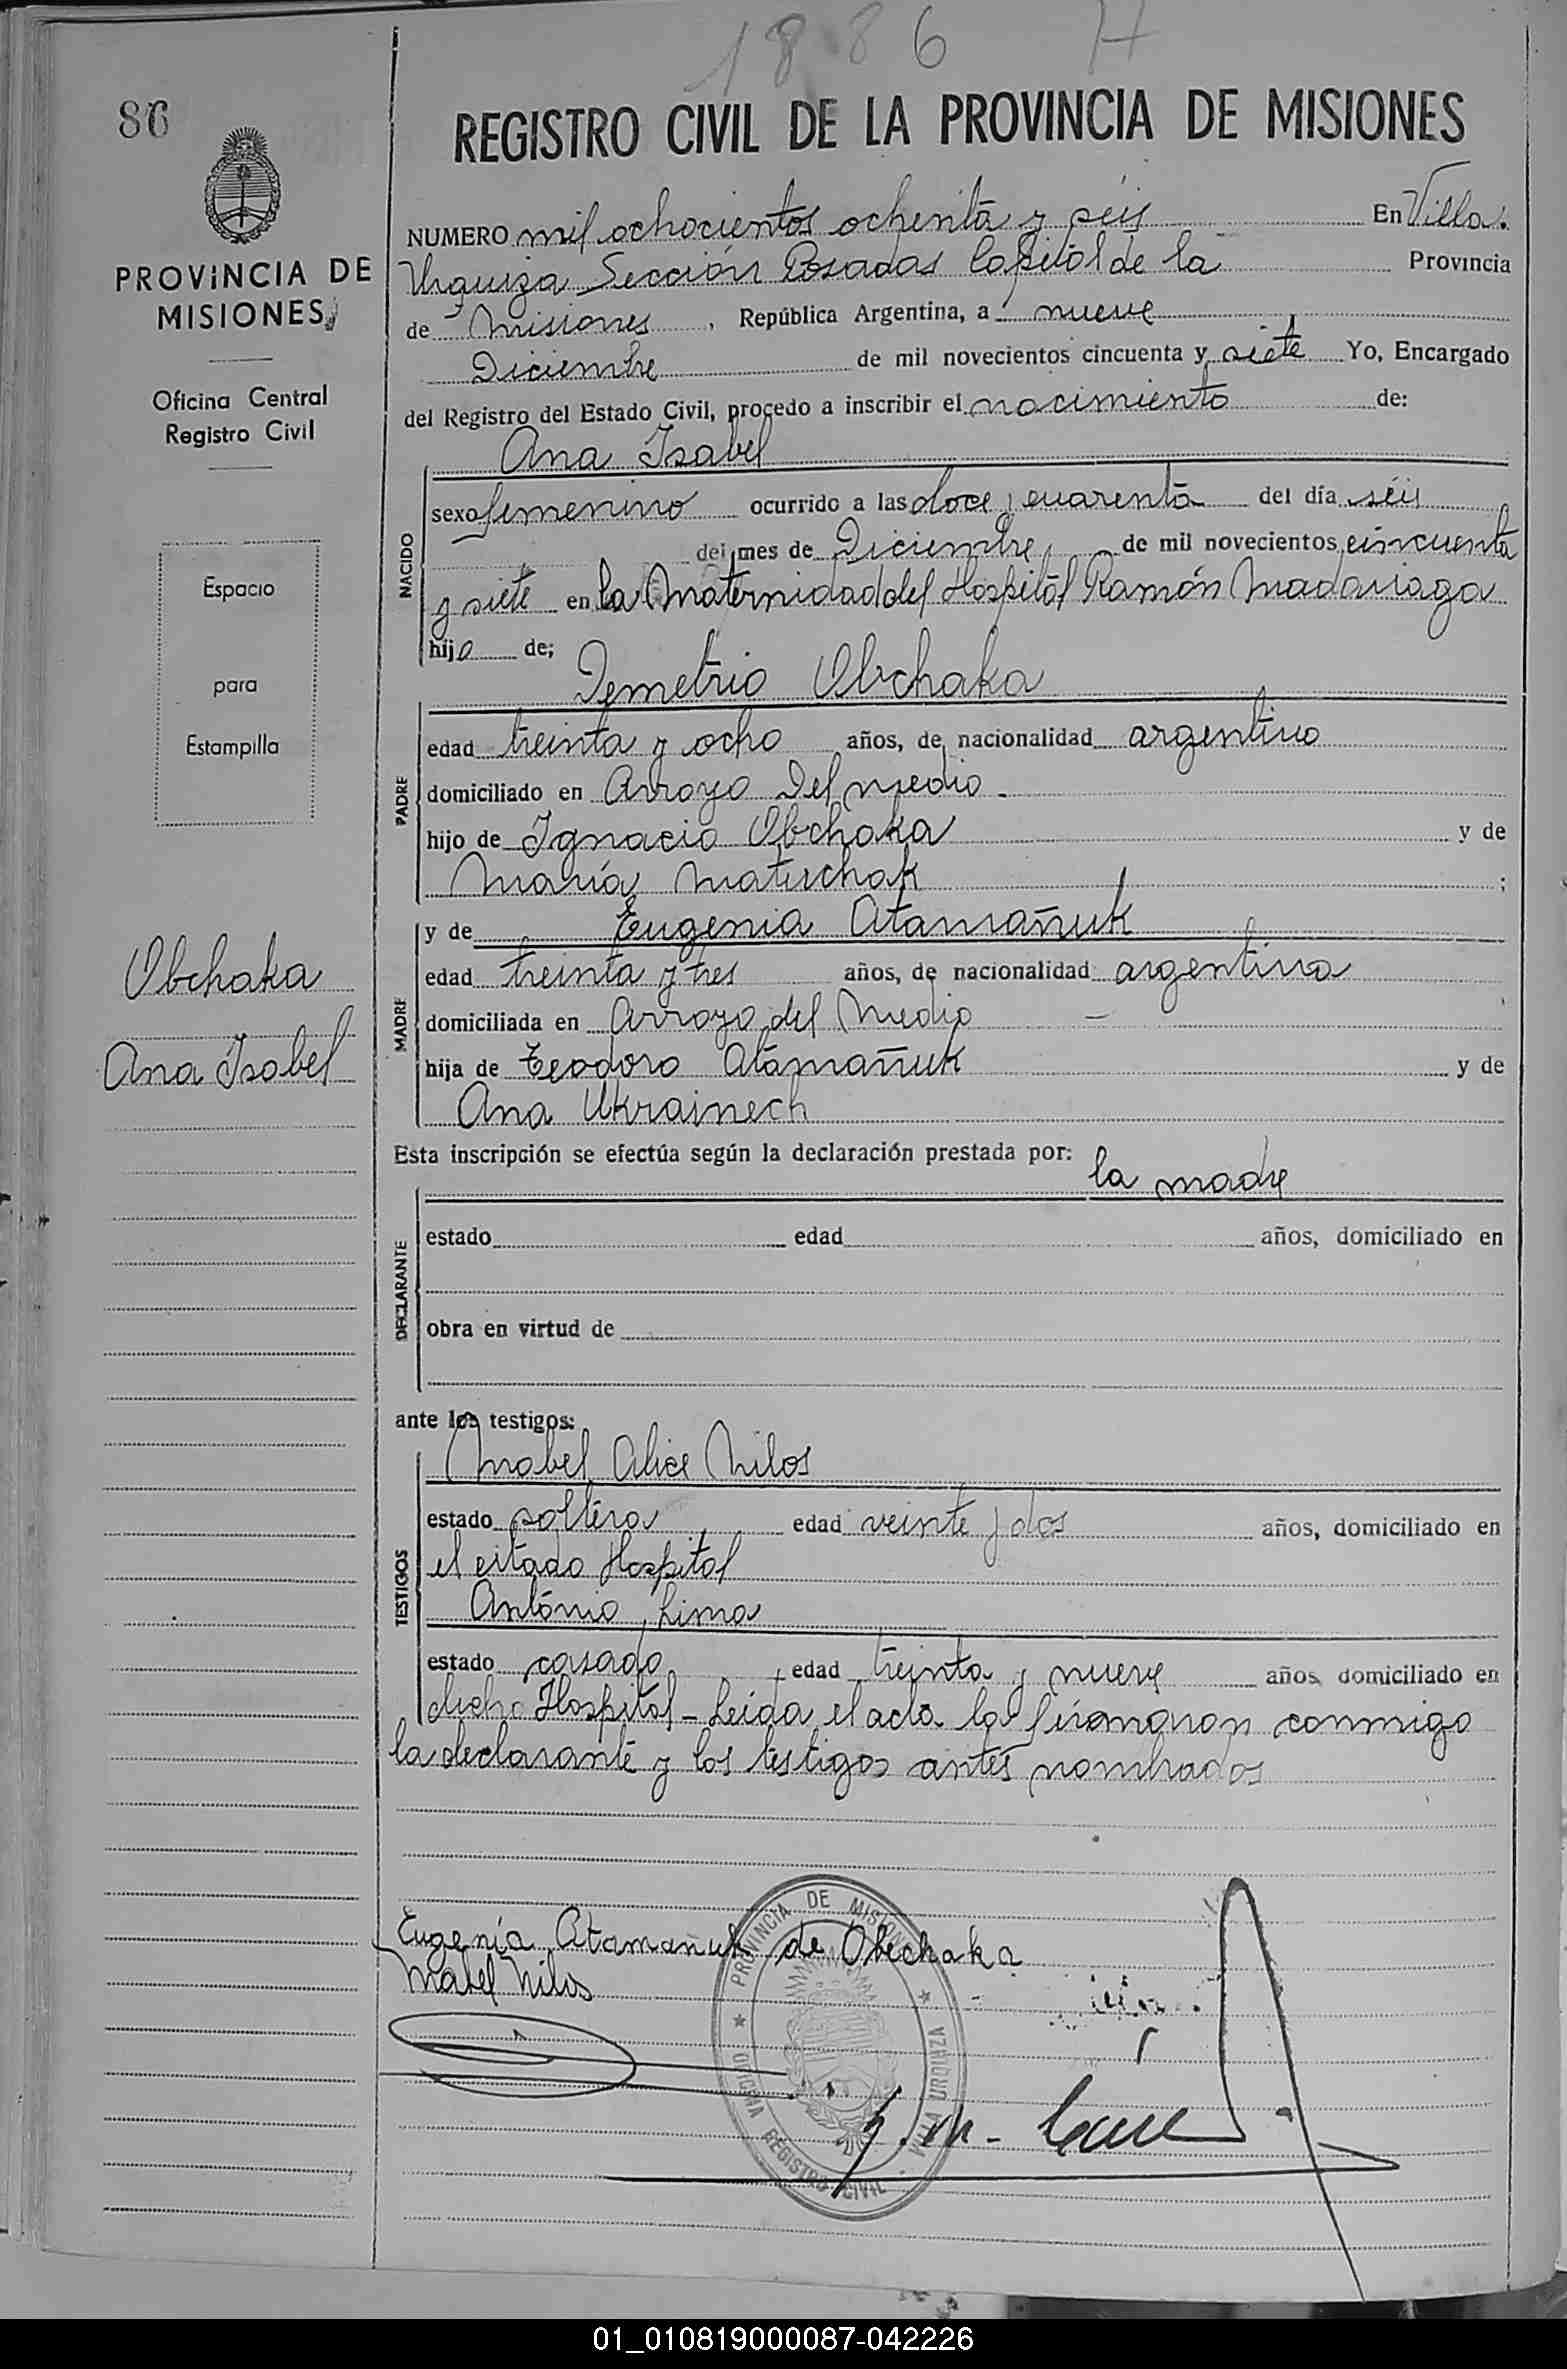 1886 H
86
REGISTRO CIVIL DE LA PROVINCIA DE MISIONES
PROVINCIA DE
MISIONES
Oficina Central
Registro Civil
Espacio
para
Estampilla
Obchaka
Ana Isabel
NUMERO mil ochocientos ochenta y séis En Villa
Urquiza Sección Posadas Capital de la Provincia
de Misiones, República Argentina, a nueve
Diciembre de mil novecientos cincuenta y siete Yo, Encargado
del Registro del Estado Civil, procedo a inscribir el nacimiento de:
Ana Isabel
NACIDO
sexo femenino ocurrido a las doce, cuarenta del día séis
del mes de Diciembre, de mil novecientos cincuenta
y siete en la Maternidad del Hospital Ramón Madariaga
hija de;
Demetrio Obchaka
PADRE
edad treinta y ocho años, de nacionalidad argentino
domiciliado en Arroyo Del medio -
hijo de Ignacio Obchaka y de
María Matischak ;
y de Eugenia Atamañuk
MADRE
edad treinta y tres años, de nacionalidad argentina
domiciliada en Arroyo del Medio -
hija de Teodoro Atamañuk y de
Ana Ukrainech
Esta inscripción se efectúa según la declaración prestada por:
la madre
DECLARANTE
estado edad años, domiciliado en
obra en virtud de
ante los testigos:
Mabel Alice Milos
TESTIGOS
estado soltera edad veinte y dos años, domiciliado en
el citado Hospital
Antonio Lima
estado casado, edad treinta y nueve años domiciliado en
dicho Hospital - Leida el acta la firmaron conmigo
la declarante y los testigos antes nombrados
Eugenia Atamañuk de Obechaka
Mabel Milos
PROVINCIA DE MISIONES
OFICINA REGISTRO CIVIL - VILLA URQUIZA
01_010819000087-042226